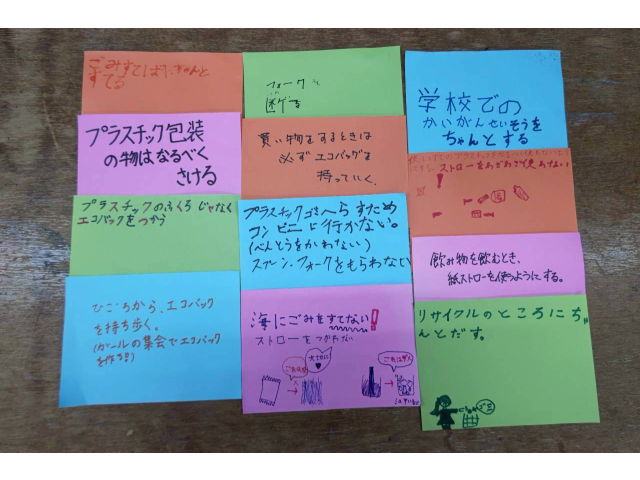 ごみすてばにちゃんと
すてる
プラスチック包装
の物はなるべく
さける
プラスチックのふくろじゃなく
エコバックをつかう
ひごろから、エコバック
を持ち歩く。
フォーク
買い物をするときは
必ずエコバッグを
持っていく。
プラスチックゴミへらすため
コンビニに行かない。
(べんとうをかわない)
スプーン・フォークをもらわない
海にごみをすてない!
ストローをつかわない
大切に
学校での
かいがんせいそうを
ちゃんとする
ストローをわざわざ使わない!
飲み物を飲むとき、
紙ストローを使うようにする。
リサイクルのところにちゃ
んとだす。
ゴミ